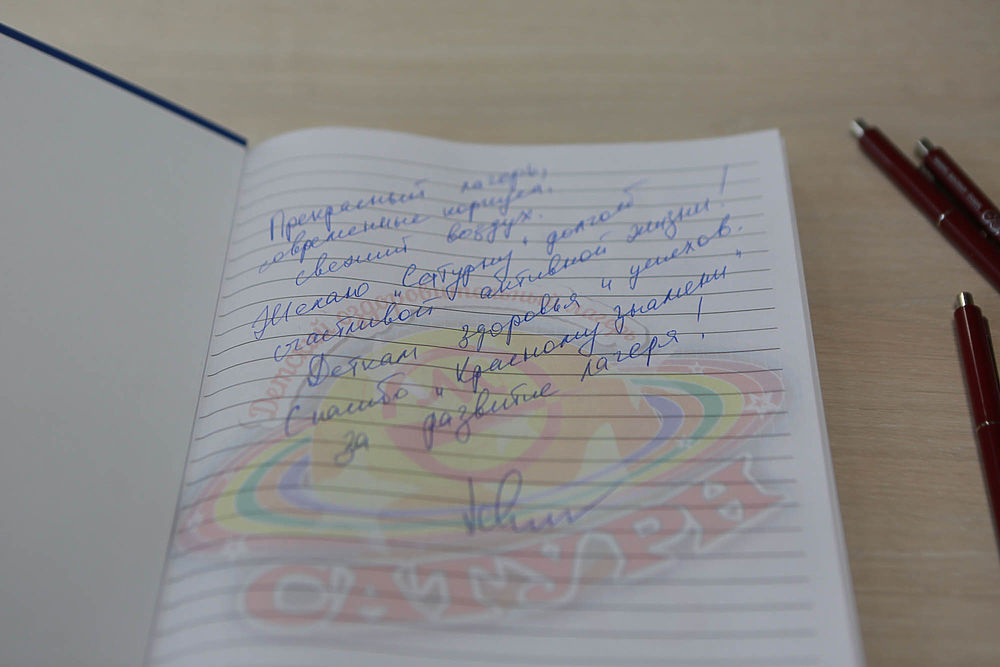 Прекрасный лагерь,
современные корпуса,
свежий воздух.
Желаю "Сатурну" долгой
счастливой активной жизни!
Деткам здоровья и успехов.
Спасибо "Красному знамени"
за развитие лагеря!
Детский оздоровительный лагерь
САТУРН